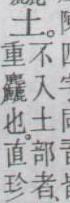 土。
不入土部者、
重麤也。直珍